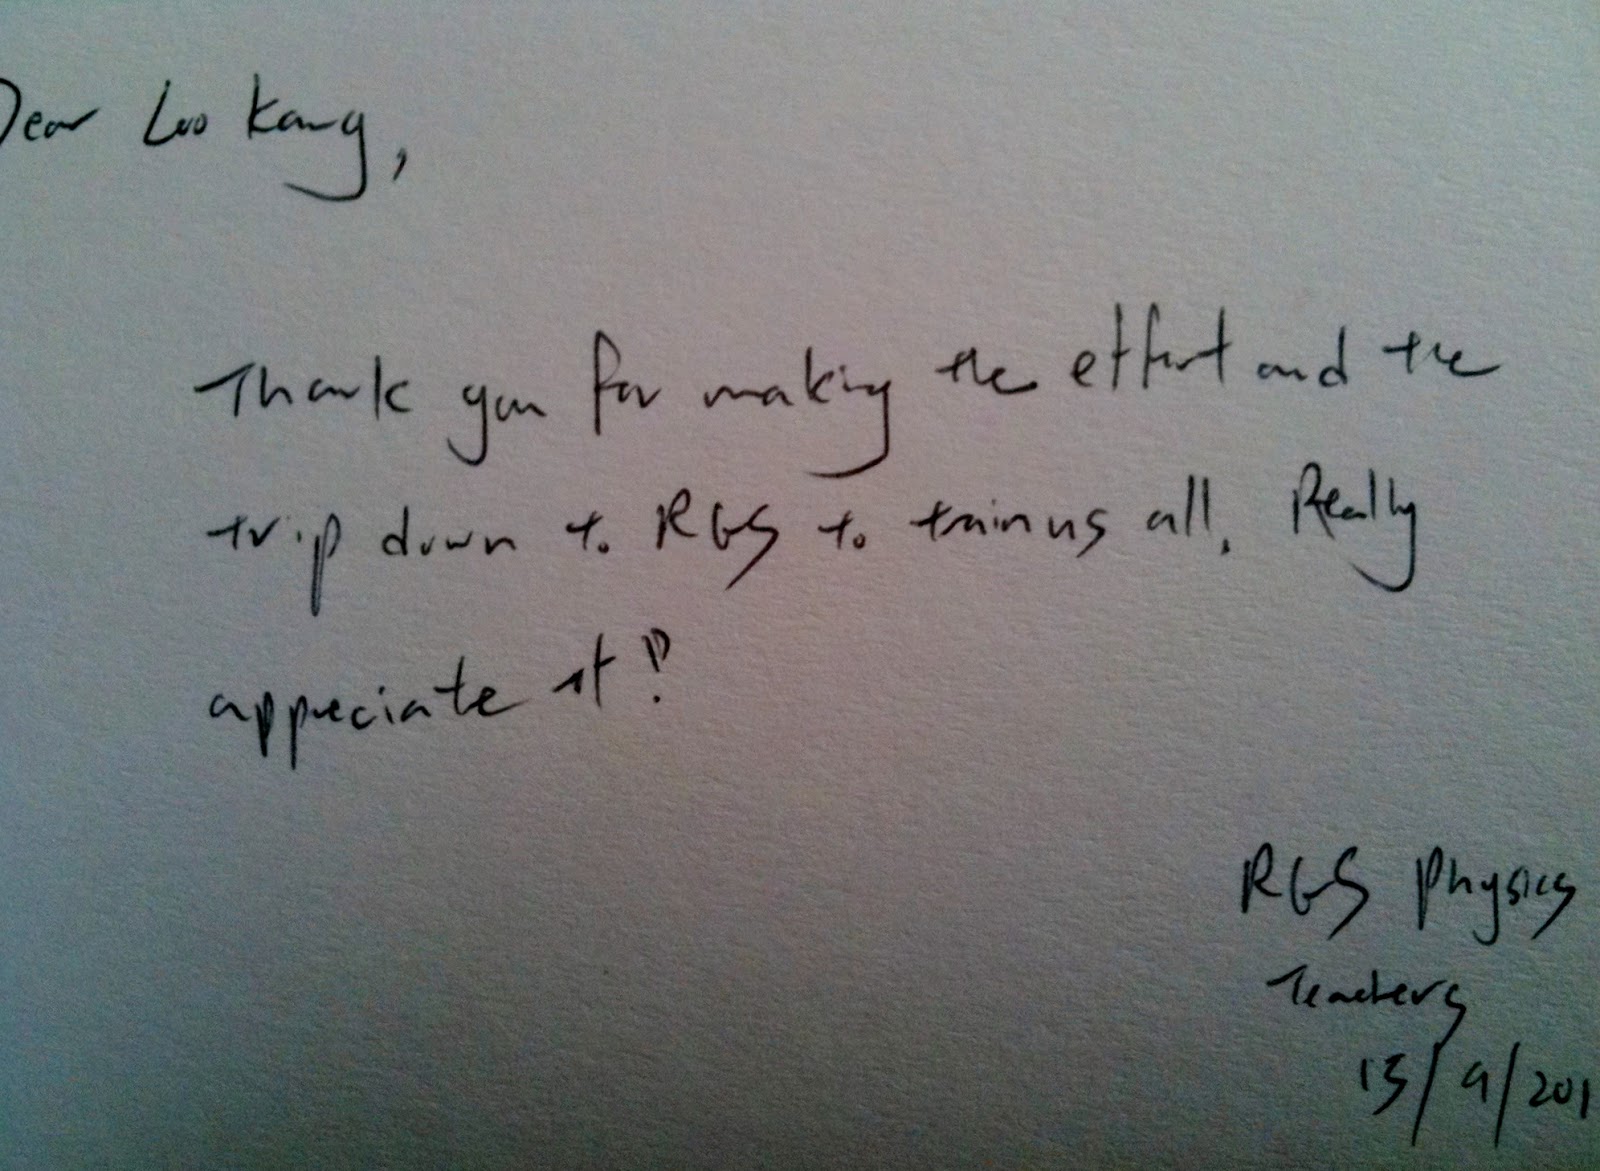 Dear Loo Kang,
Thank you for making the effort and the
trip down to RGS to train us all. Really
appreciate it!
RGS Physics
Teachers
13/9/201